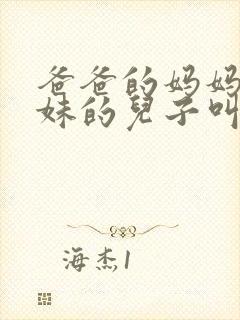 爸爸的妈妈
妹的兒子叫
海杰1